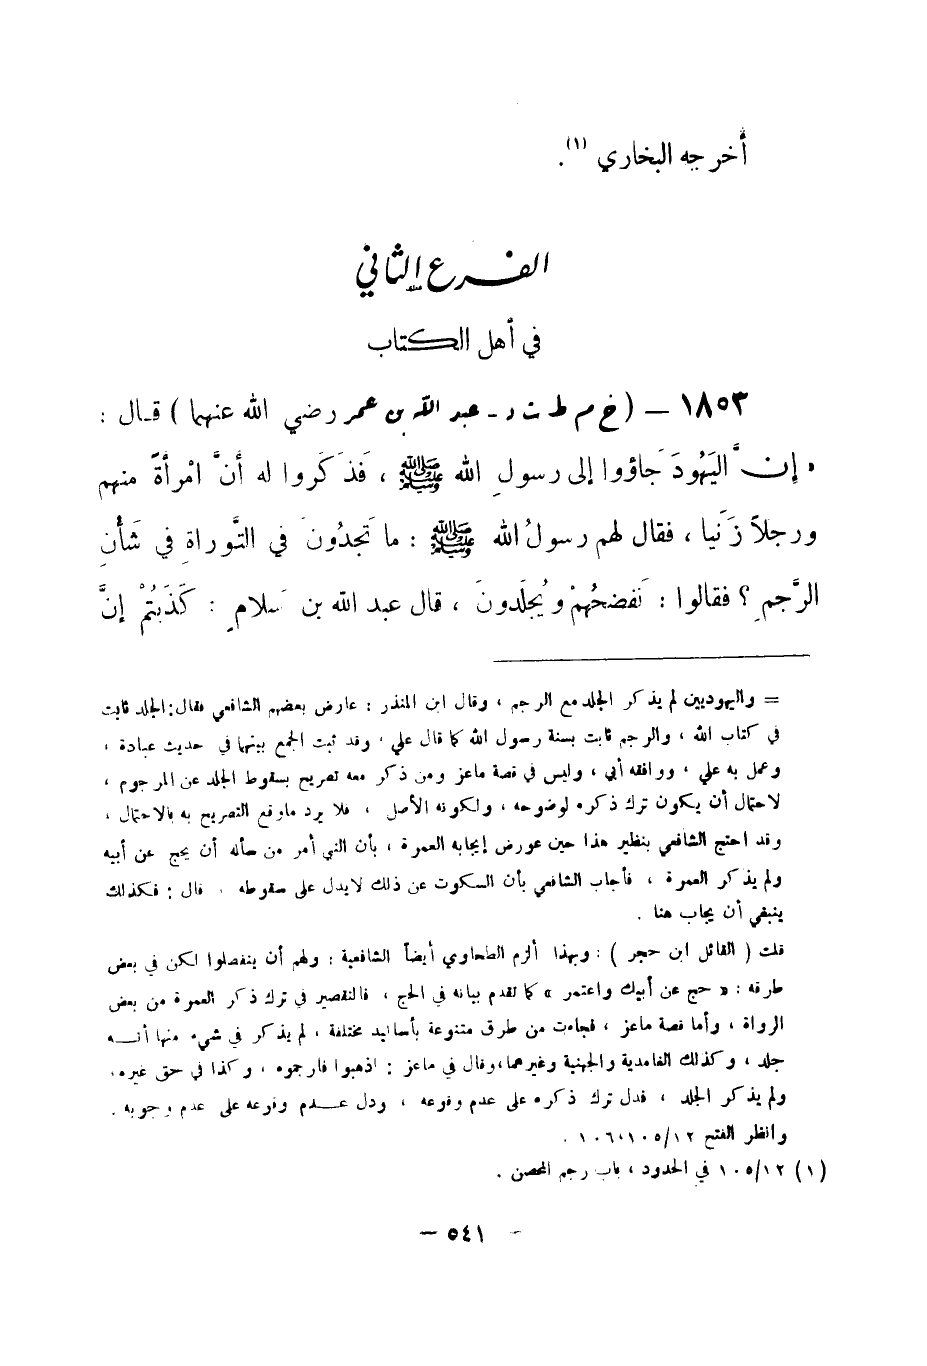 أخرجه البخاري (١).
الفرع الثاني
في أهل الكتاب
١٨٥٣ – (خ م ط ت د - عبد الله بن عمر رضي الله عنهما) قال :
« إنَّ اليَهُودَ جَاؤوا إلى رسولِ الله ﷺ ، فَذَكَروا له أنَّ امْرأةً منهم
ورجلاً زَنَيا ، فقال لهم رسولُ الله ﷺ : ما تَجدُونَ في التَّوراةِ في شَأْنِ
الرَّجمِ ؟ فقالوا : نَفضحُهُمْ ويُجلَدونَ ، قال عبد الله بن سَلامٍ : كَذَبْتُمْ إنَّ
= واليهوديين لم يذكر الجلد مع الرجم ، وقال ابن المنذر : عارض بعضهم الشافعي فقال : الجلد ثابت
في كتاب الله ، والرجم ثابت بسنة رسول الله كما قال علي ، وقد ثبت الجمع بينهما في حديث عبادة ،
وعمل به علي ، ووافقه أبي ، وليس في قصة ماعز ومن ذكر معه تصريح بسقوط الجلد عن المرجوم ،
لاحتمال أن يكون ترك ذكره لوضوحه ، ولكونه الأصل ، فلا يرد ماوقع التصريح به بالاحتمال ،
وقد احتج الشافعي بنظير هذا حين عورض إيجابه العمرة ، بأن النبي أمر من سأله أن يحج عن أبيه
ولم يذكر العمرة ، فأجاب الشافعي بأن السكوت عن ذلك لايدل على سقوطه . قال : فكذلك
ينبغي أن يجاب هنا .
قلت ( القائل ابن حجر ) : وبهذا ألزم الطحاوي أيضاً الشافعية : ولهم أن ينفصلوا لكن في بعض
طرقه : « حج عن أبيك واعتمر » كما تقدم بيانه في الحج ، فالتقصير في ترك ذكر العمرة من بعض
الرواة ، وأما قصة ماعز ، فجاءت من طرق متنوعة بأسانيد مختلفة ، لم يذكر في شيء منها أنــه
جلد ، وكذلك الغامدية والجهنية وغيرهما ، وقال في ماعز : اذهبوا فارجموه ، وكذا في حق غيره ،
ولم يذكر الجلد ، فدل ترك ذكره على عدم وقوعه ، ودل عــدم وقوعه على عدم وجوبه .
وانظر الفتح ١٠٥/١٢،١٠٦ .
(١) ١٠٥/١٢ في الحدود ، باب رجم المحصن .
– ٥٤١ –